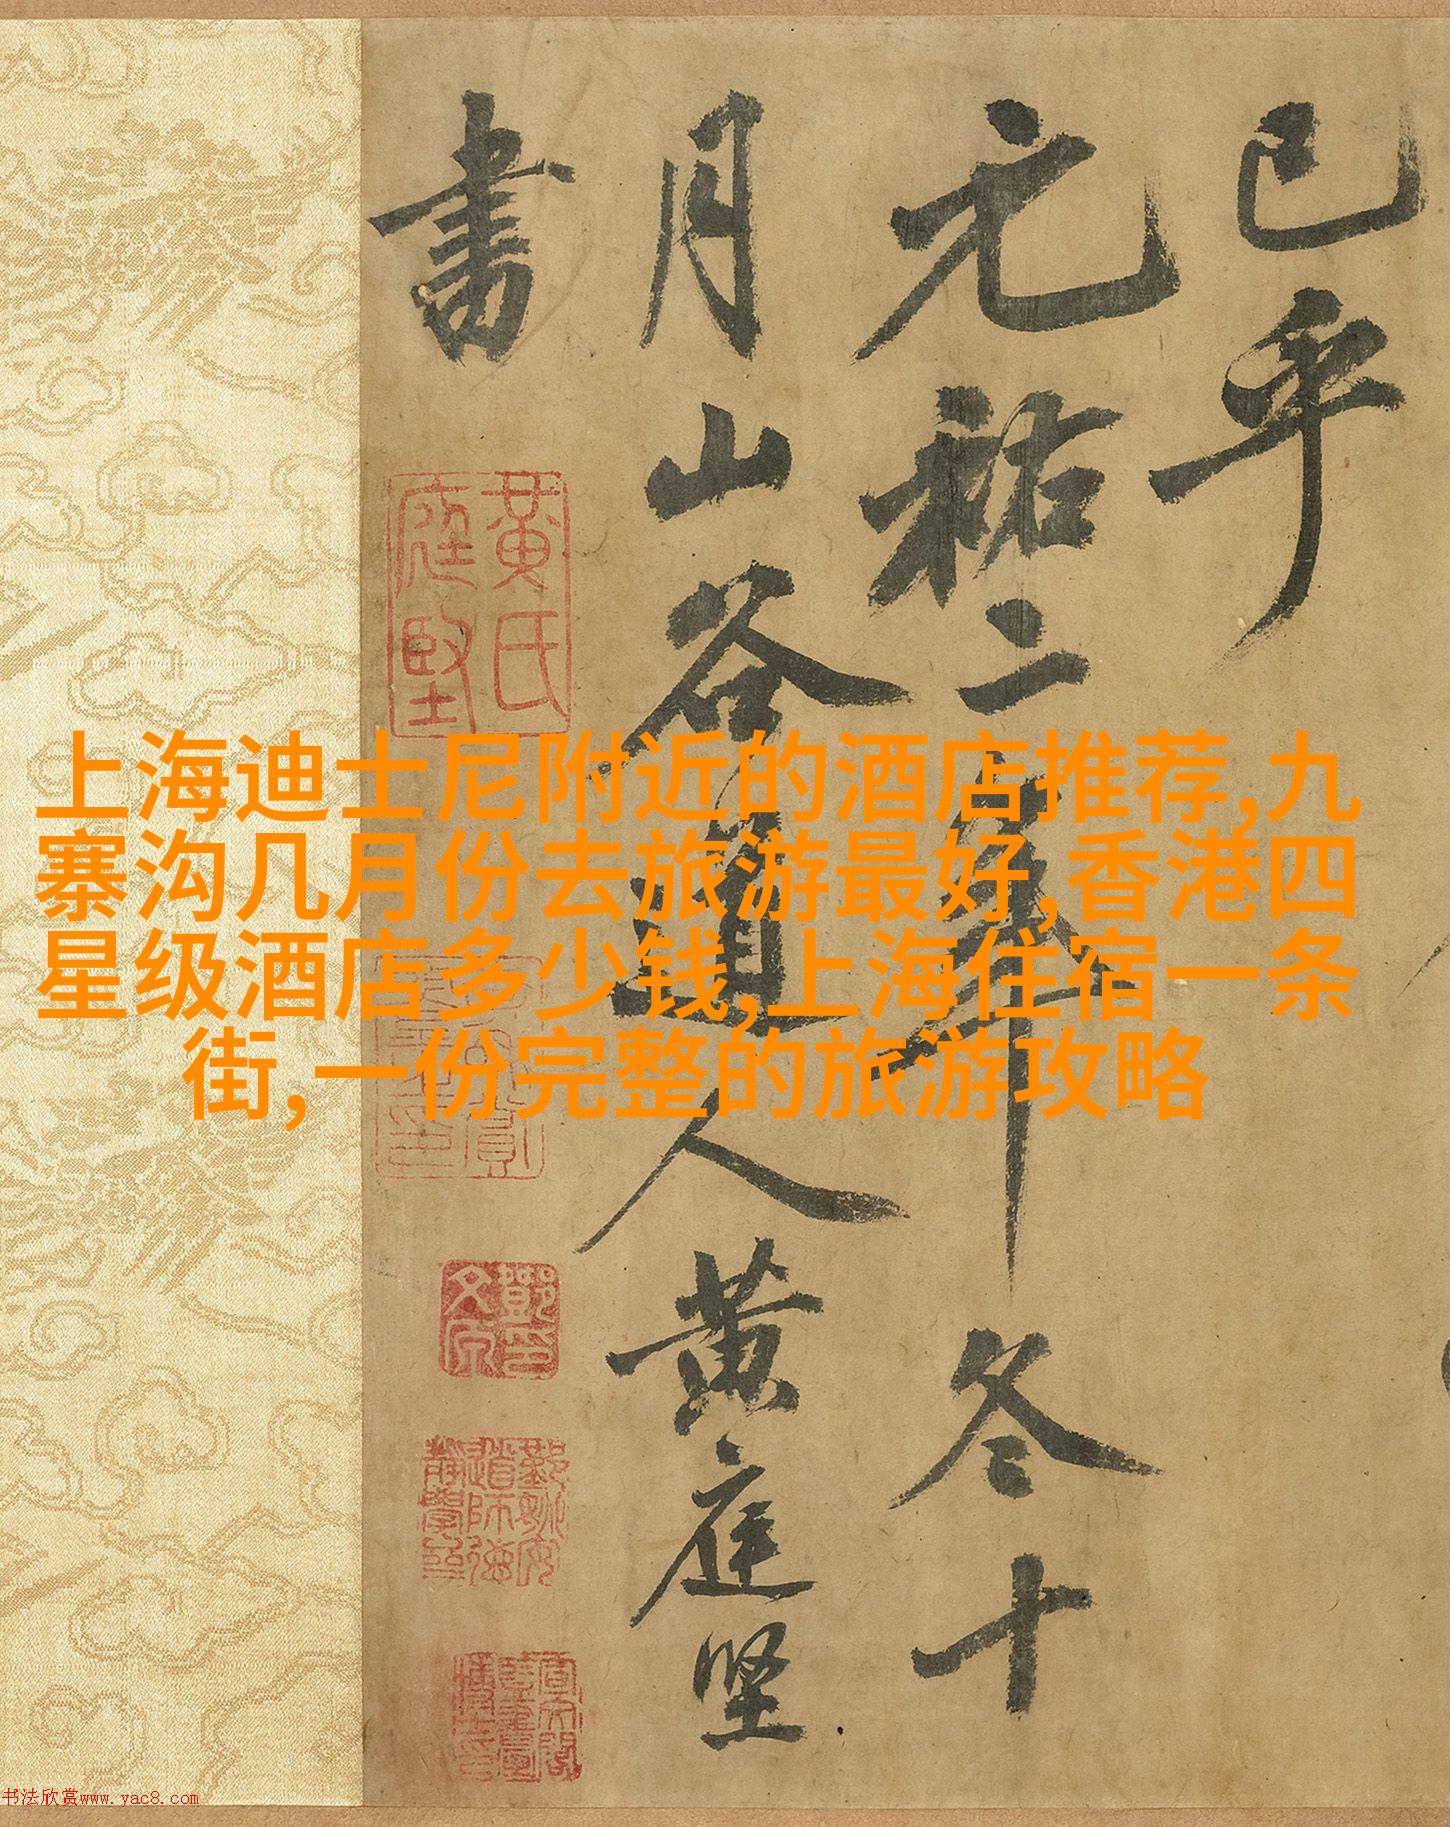 已乎
元祐二年冬十
月山谷道人黄庭坚
書
黄氏
庭堅
上海迪士尼附近的酒店推荐,九
寨沟几月份去旅游最好,香港四
星级酒店多少钱,上海住宿一条
街,一份完整的旅游攻略
书法欣赏www.yac8.com